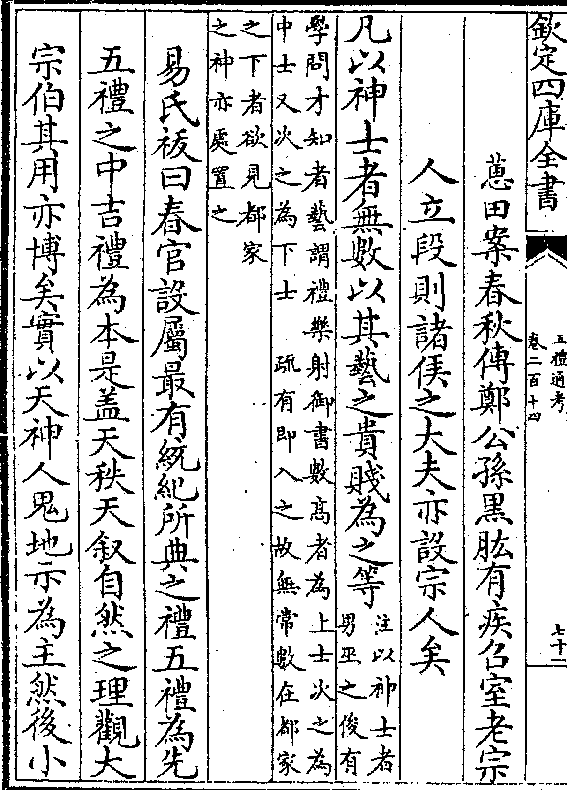 欽定四庫全書
五禮通考
卷二百十四
七十二
蕙田案春秋傳鄭公孫黑肱有疾召室老宗
人立段則諸侯之大夫亦設宗人矣
凡以神士者無數以其藝之貴賤為之等
注以神士者
男巫之俊有
學問才知者藝謂禮樂射御書數高者為上士次之為
中士又次之為下士 疏有即入之故無常數在都家
之下者欲見都家
之神亦處置之
易氏祓曰春官設屬最有統紀所典之禮五禮為先
五禮之中吉禮為本是盖天秩天叙自然之理觀大
宗伯其用亦博矣實以天神人鬼地示為主然後小